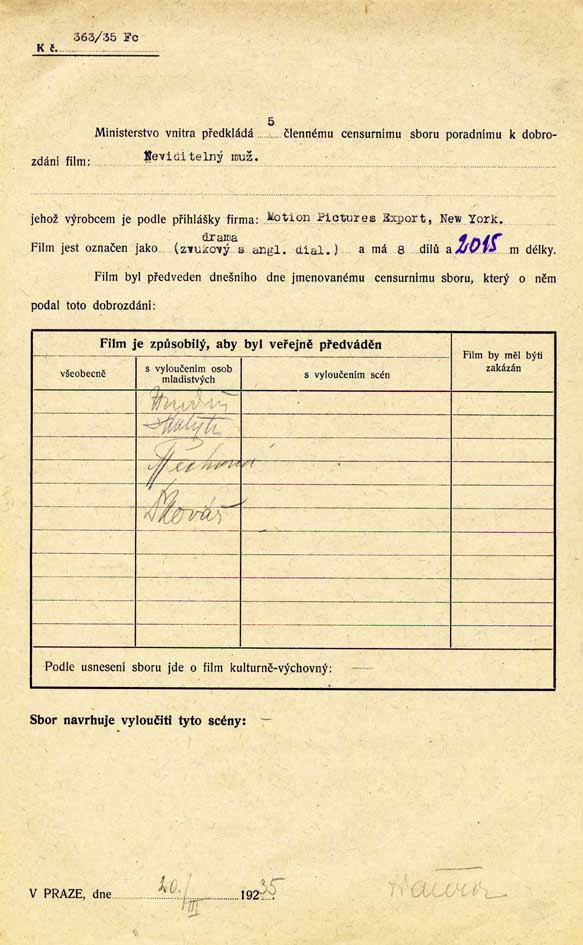 K č. 363/35 Fc
Ministerstvo vnitra předkládá 5 člennému censurnímu sboru poradnímu k dobro-
zdání film: Neviditelný muž.
jehož výrobcem je podle přihlášky firma: Motion Pictures Export, New York.
drama
Film jest označen jako (zvukový s angl. dial.) a má 8 dílů a 2015 m délky.
Film byl předveden dnešního dne jmenovanému censurnímu sboru, který o něm
podal toto dobrozdání:
Film je způsobilý, aby byl veřejně předváděn
Film by měl býti
zakázán
všeobecně
s vyloučením osob
mladistvých
s vyloučením scén
Podle usnesení sboru jde o film kulturně-výchovný: —
Sbor navrhuje vyloučiti tyto scény: —
V PRAZE, dne 20./III 1935.